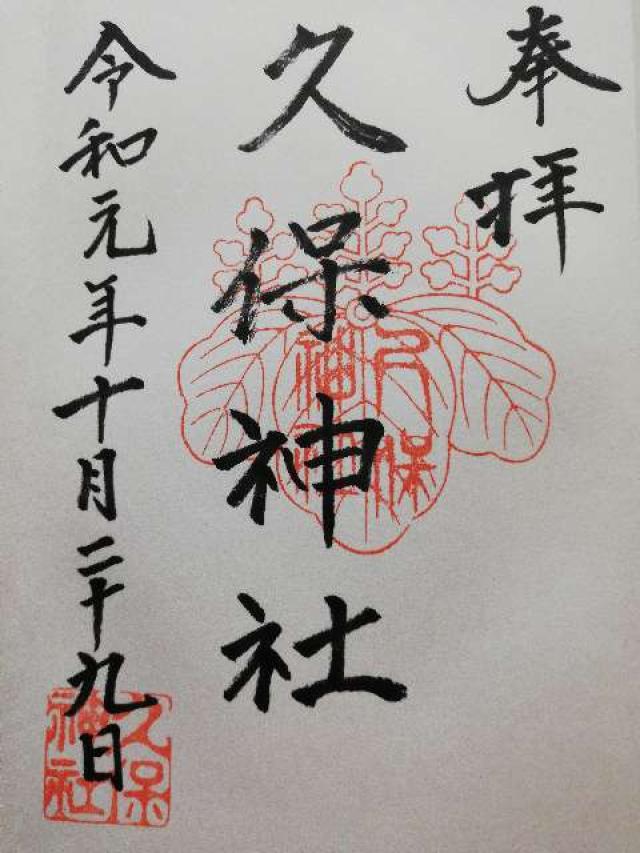 奉拝
久保神社
令和元年十月二十九日
久保
神社
久保
神社